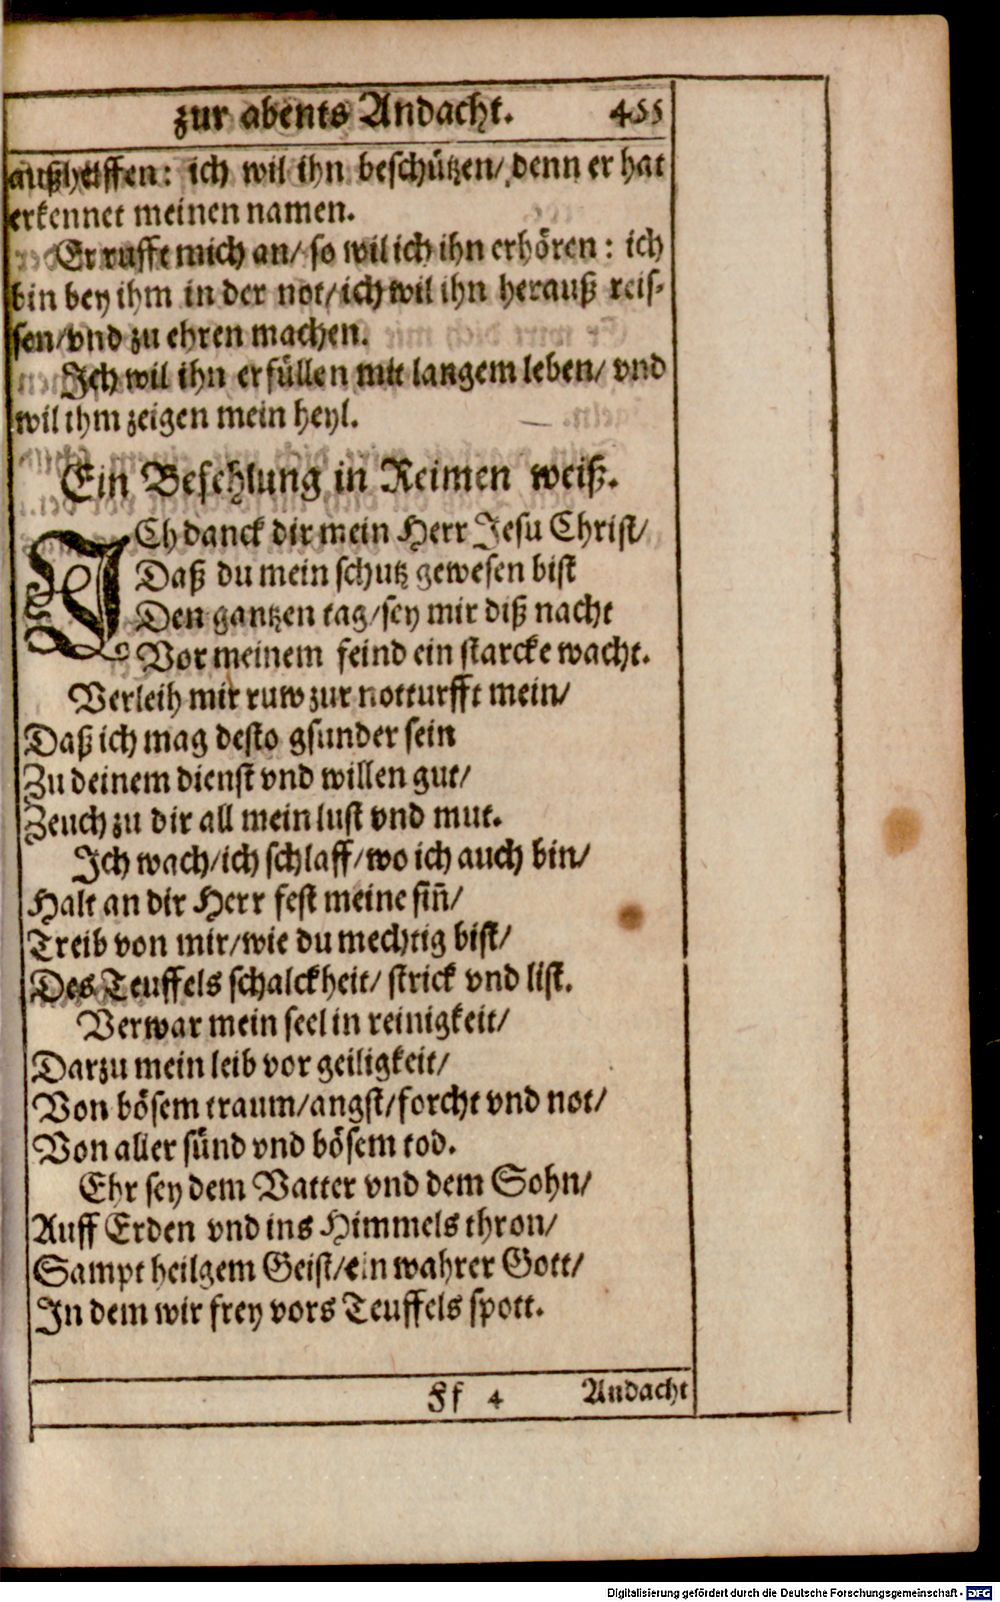 zur abents Andacht. 455
außhelffen: ich wil ihn beschützen/ denn er hat
erkennet meinen namen.
Er rufft mich an/ so wil ich ihn erhören: ich
bin bey ihm in der not/ ich wil ihn herauß reis-
sen/ vnd zu ehren machen.
Ich wil ihn erfüllen mit langem leben/ vnd
wil ihm zeigen mein heyl.
Ein Befehlung in Reimen weiß.
ICh danck dir mein Herr Jesu Christ/
Daß du mein schutz gewesen bist
Den gantzen tag/ sey mir diß nacht
Vor meinem feind ein starcke wacht.
Verleih mir ruw zur notturfft mein/
Daß ich mag desto gsunder sein
Zu deinem dienst vnd willen gut/
Zeuch zu dir all mein lust vnd mut.
Ich wach/ ich schlaff/ wo ich auch bin/
Halt an dir Herr fest meine sin̄/
Treib von mir/ wie du mechtig bist/
Des Teuffels schalckheit/ strick vnd list.
Verwar mein seel in reinigkeit/
Darzu mein leib vor geiligkeit/
Von bösem traum/ angst/ forcht vnd not/
Von aller sünd vnd bösem tod.
Ehr sey dem Vatter vnd dem Sohn/
Auff Erden vnd ins Himmels thron/
Sampt heilgem Geist/ ein wahrer Gott/
In dem wir frey vors Teuffels spott.
Ff 4 Andacht
Digitalisierung gefördert durch die Deutsche Forschungsgemeinschaft - DFG